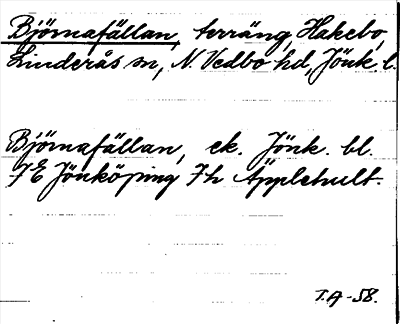 Björnafällan, terräng, Hakebo,
Linderås sn, N. Vedbo hd, Jönk. l.
Björnafällan, ek. Jönk. bl.
7E Jönköping 7h Äpplehult.
T.A -58.